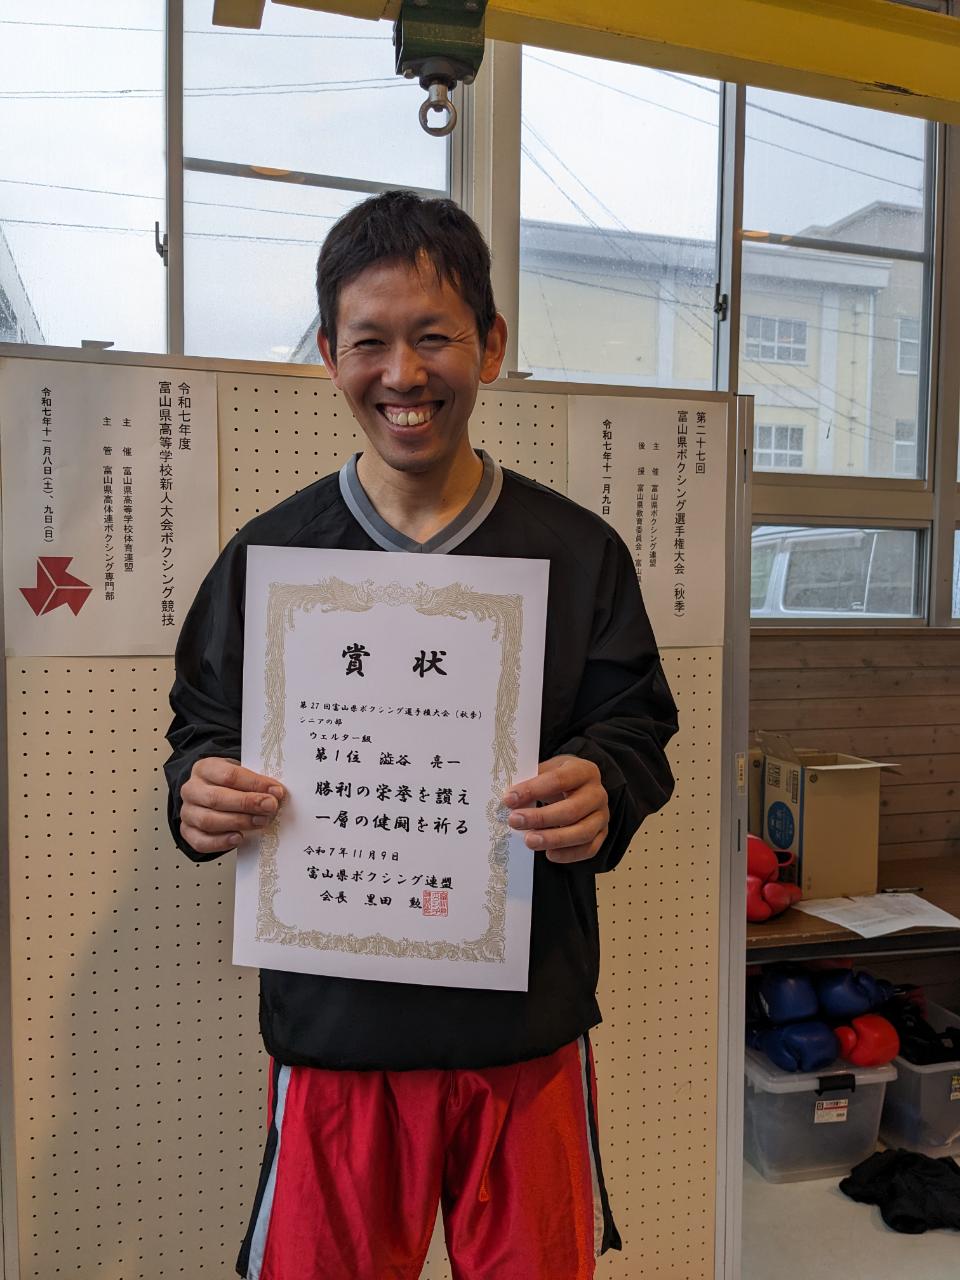 令和七年度
富山県高等学校新人大会ボクシング競技
主　催　富山県高等学校体育連盟
主　管　富山県高体連ボクシング専門部
令和七年十一月八日（土）、九日（日）
第二十七回
富山県ボクシング選手権大会（秋季）
主　催　富山県ボクシング連盟
後　援　富山県教育委員会・富山県
令和七年十一月九日
賞　状
第27回富山県ボクシング選手権大会（秋季）
シニアの部
ウェルター級
第1位　澁谷　亮一
勝利の栄誉を讃え
一層の健闘を祈る
令和7年11月9日
富山県ボクシング連盟
会長　黒田　勲